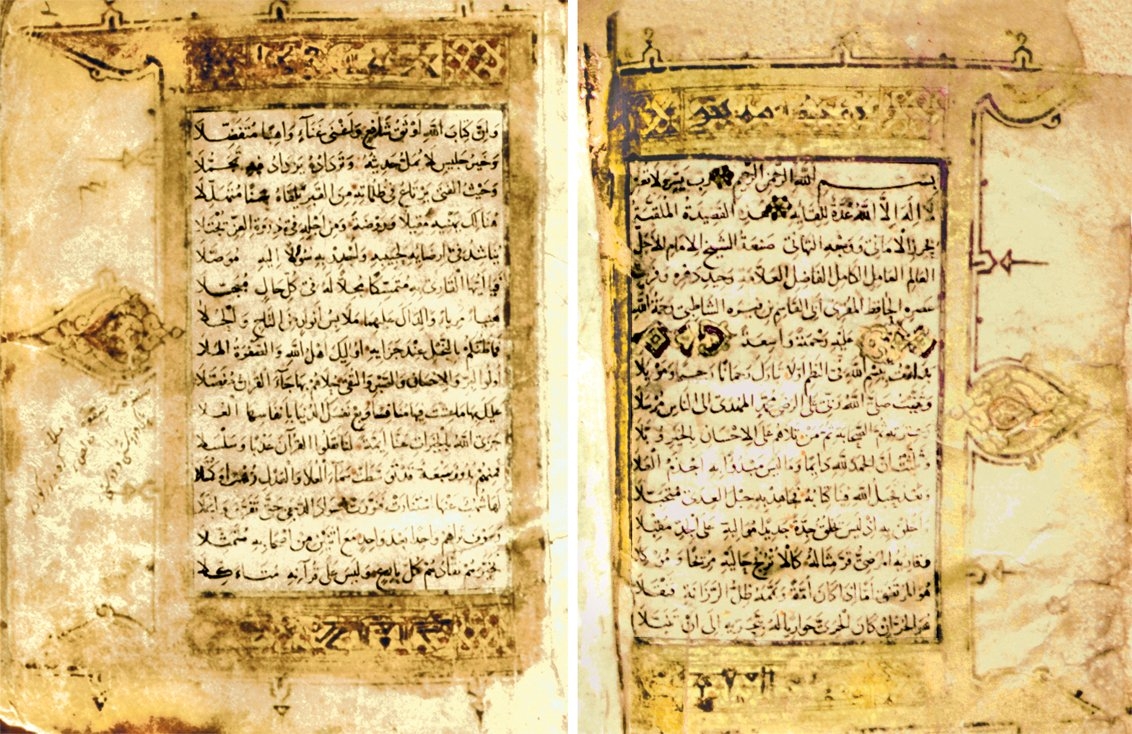 بسم الله الرحمن الرحيم رب يسر ولا تعسر
لا اله الا الله عدة للقايه هذه القصيدة الملقبة
بحرز الاماني ووجه التهاني صنعة الشيخ الامام الاجل
العالم العامل الكامل الفاضل العلامة وحيد دهره وفريد
عصره الحافظ المقرى ابى القاسم بن فيره الشاطبى رحمة الله
عليه رحمة واسعة
بدات ببسم الله فى النظم اولا تبارك رحمانا رحيما وموئلا
وثنيت صلى الله ربى على الرضى محمد المهدى الى الناس مرسلا
وعترته ثم الصحابة ثم من تلاهم على الاحسان بالخير وبلا
وثلثت ان الحمد لله دايما وما ليس مبدوا به اجذم العلا
وبعد فحبل الله فينا كتابه فجاهد به حبل العدى متحبلا
واخلق به اذ ليس يخلق جدة جديدا مواليه على الجد مقبلا
وقارئه المرضى قر مثاله كالاترج حاليه مريحا وموكلا
هو المرتضى اما اذا كان امة ويممه ظل الرزانة قنقلا
هو الحر ان كان الحرى حواريا له بتحريه الى ان تنبلا
وان كتاب الله اوثق شافع واغنى غناء واهبا متفضلا
وخير جليس لا يمل حديثه وترداده يزداد فيه تجملا
وحيث الفتى يرتاع فى ظلماته من القبر يلقاه سنا متهللا
هنالك يهنيه مقيلا وروضة ومن اجله فى ذروة العز يجتلا
يناشد فى ارضايه لحبيبه واجدر به سولا اليه موصلا
فيا ايها القارى به متمسكا مجلا له فى كل حال مبجلا
هنيئا مريئا والداك عليهما ملابس انوار من التاج والحلا
فما ظنكم بالنجل عند جزايه اوليك اهل الله والصفوة الملا
اولوا البر والاحسان والصبر والتقى حلاهم بها جاء القران مفصلا
عليك بها ما عشت فيها منافسا وبع نفسك الدنيا بانفاسها العلا
جزى الله بالخيرات عنا ايمة لنا نقلوا القرآن عذبا وسلسلا
فمنهم بدور سبعة قد توسطت سماء العلا والعدل زهرا وكملا
لها شهب عنها استنارت فنورت سواد الدجى حتى تفرق وانجلا
وسوف تراهم واحدا بعد واحد مع اثنين من اصحابه متمثلا
تخيرهم نقادهم كل بارع وليس على قرآنه متاكلا